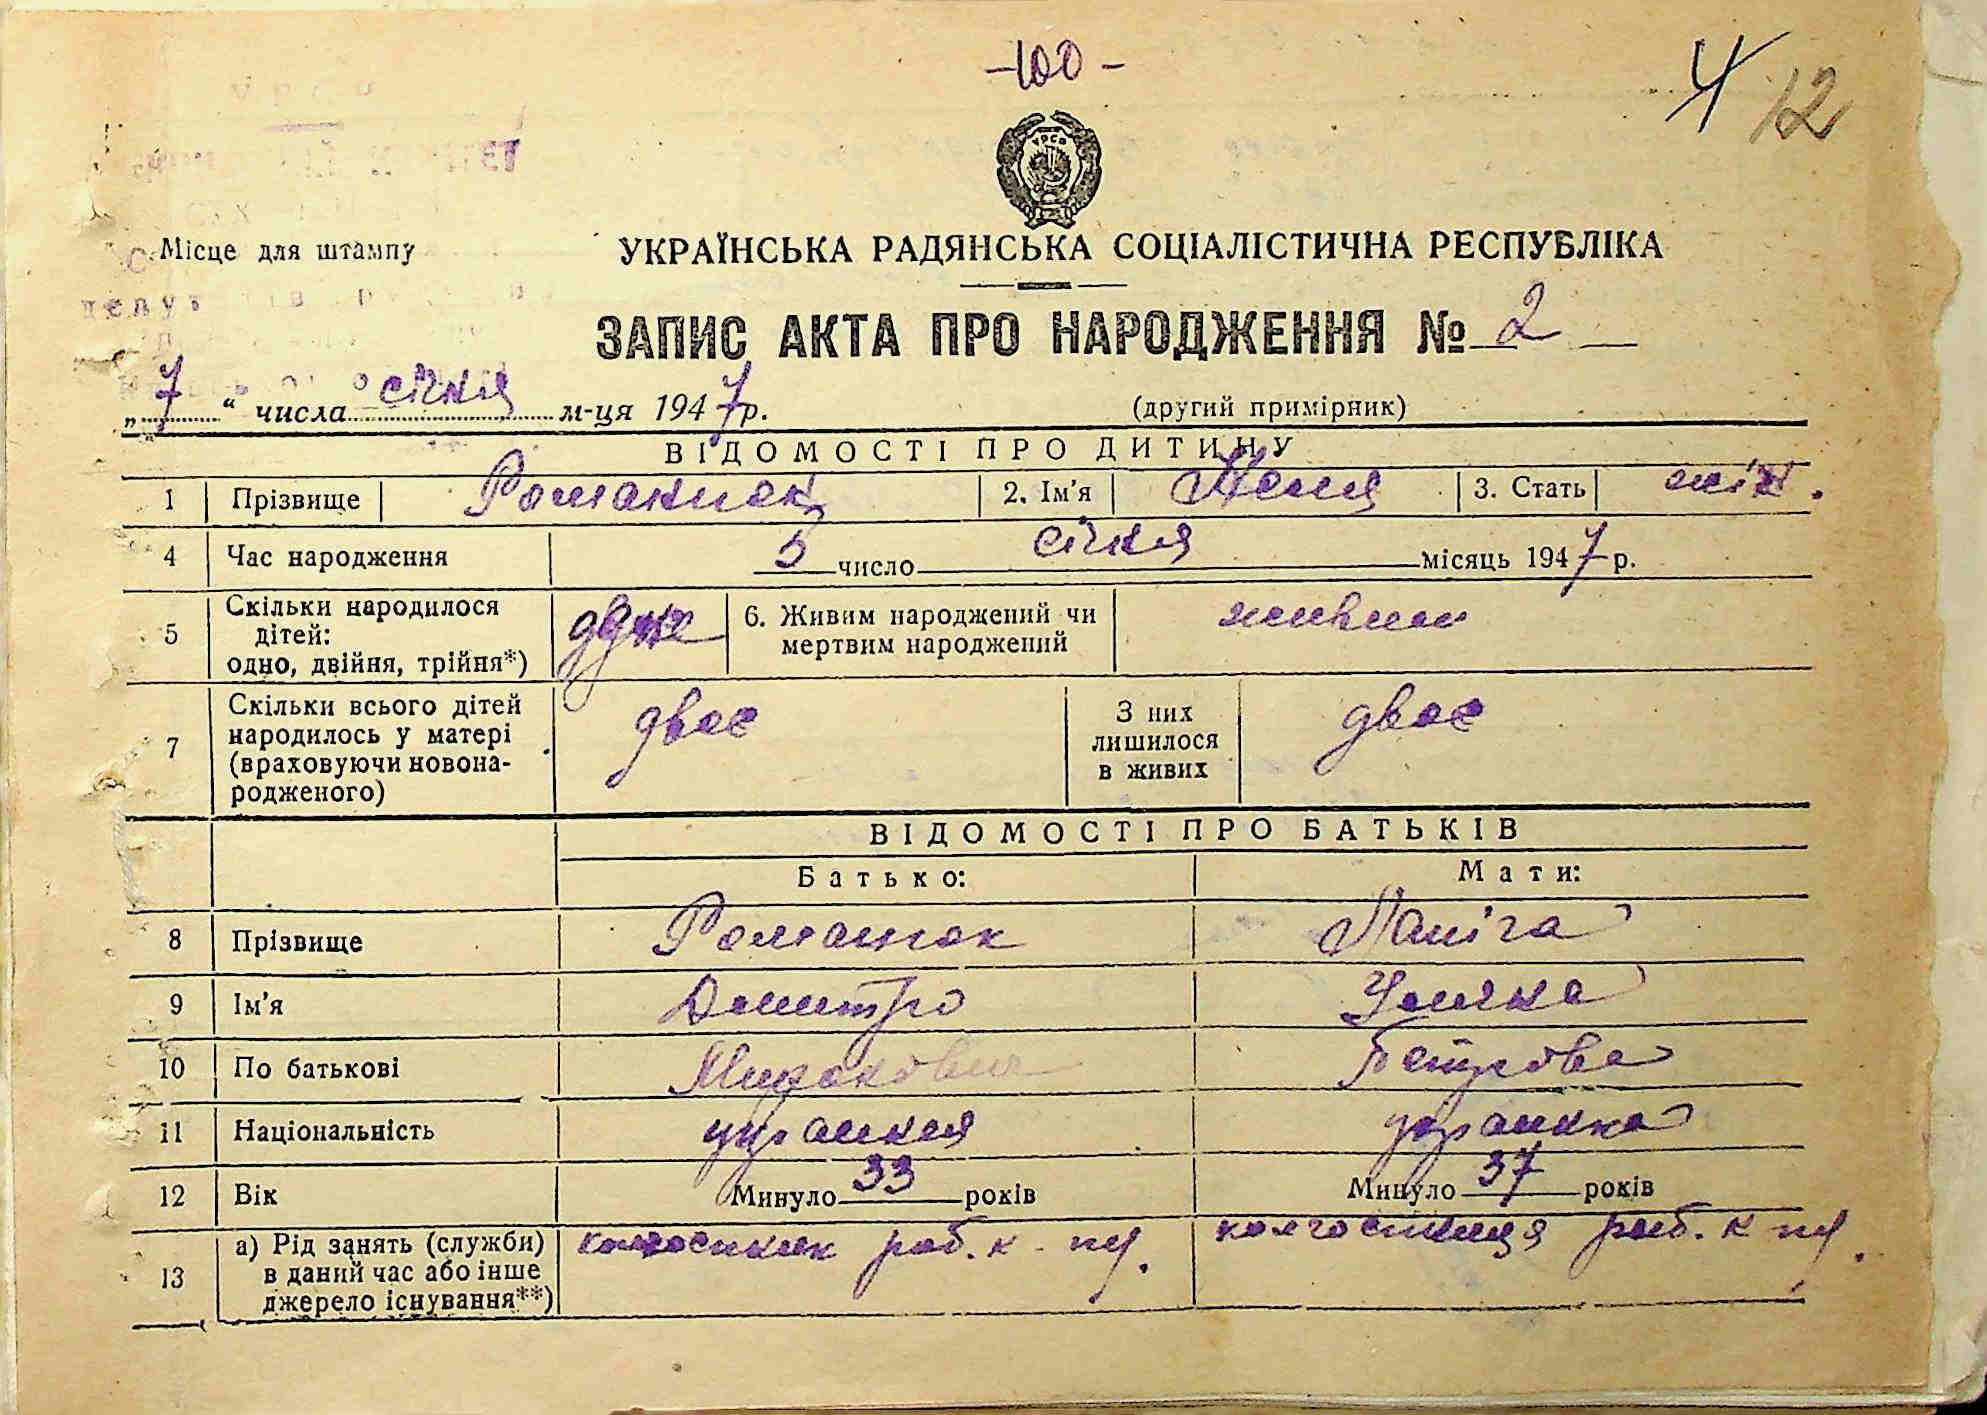 -100-
4 12
УРСР
Місце для штампу
УКРАЇНСЬКА РАДЯНСЬКА СОЦІАЛІСТИЧНА РЕСПУБЛІКА
ЗАПИС АКТА ПРО НАРОДЖЕННЯ № 2
„7“ числа січня м-ця 1947 р. (другий примірник)
ВІДОМОСТІ ПРО ДИТИНУ
1 Прізвище Романюк 2. Ім'я 3. Стать
4 Час народження 5 число січня місяць 1947 р.
5 Скільки народилося
дітей:
одно, двійня, трійня*)
6. Живим народжений чи
мертвим народжений
живим
7 Скільки всього дітей
народилось у матері
(враховуючи новона-
родженого)
двоє
З них
лишилося
в живих
двоє
ВІДОМОСТІ ПРО БАТЬКІВ
Батько: Мати:
8 Прізвище Романюк
9 Ім'я Дмитро
10 По батькові Петрова
11 Національність українка
12 Вік Минуло 33 років Минуло 37 років
13 а) Рід занять (служби)
в даний час або інше
джерело існування**)
колгоспник роб. к-пу. колгоспниця роб. к-пу.